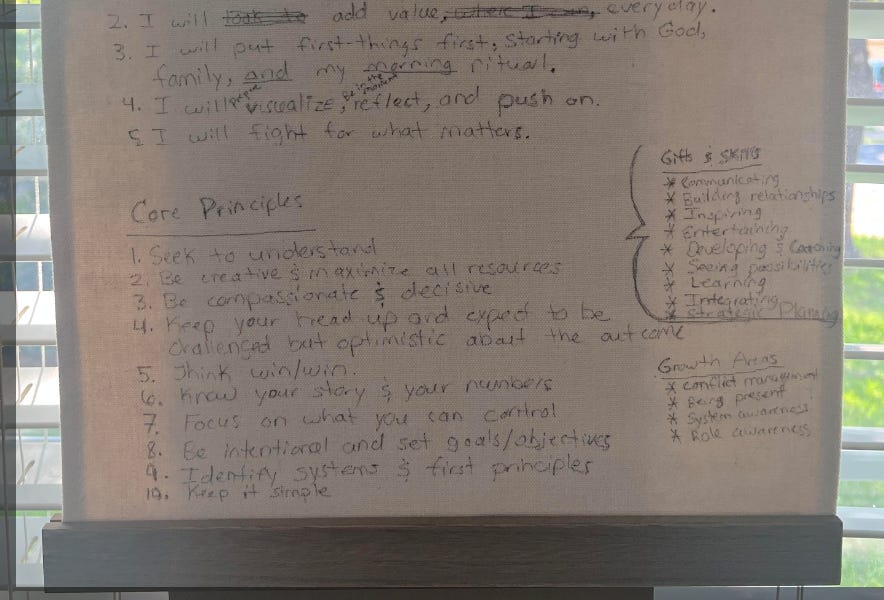 2. I will look to add value, where I can, every day.
3. I will put first-things first, starting with God,
family, and my morning ritual.
4. I will visualize, be in the moment, reflect, and push on.
5 I will fight for what matters.
Core Principles
1. Seek to understand
2. Be creative & maximize all resources
3. Be compassionate & decisive
4. Keep your head up and expect to be
challenged but optimistic about the outcome
5. Think win/win.
6. Know your story & your numbers
7. Focus on what you can control
8. Be intentional and set goals/objectives
9. Identify systems & first principles
10. Keep it simple
Gifts & Skills
* Communicating
* Building relationships
* Inspiring
* Entertaining
* Developing & Coaching
* Seeing possibilities
* Learning
* Integrating
* Strategic Planning
Growth Areas
* Conflict management
* Being present
* System awareness
* Role awareness